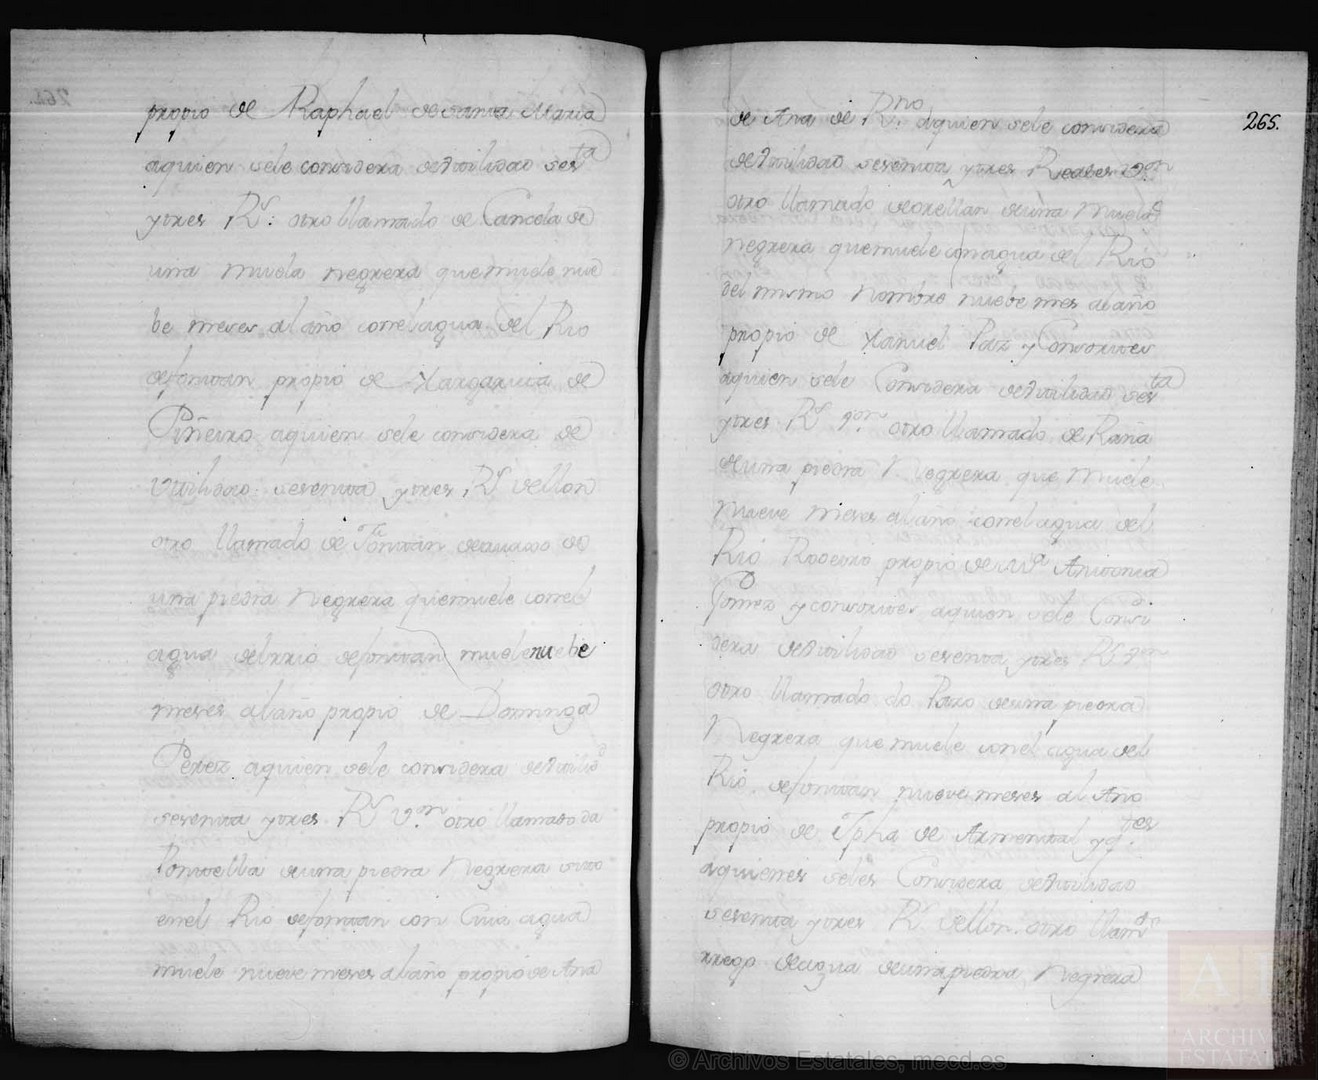 propio de Raphael de santa Maria
aquien sele considera de Vtilidad sesta
ytres Rs: otro llamado de Cancela de
una muela negrera que muele nue
be meses al año con el agua del Rio
propio de Margarita de
Piñeiro aquien sele considera de
Vtilidad sesenta ytres Rs vellon
otro llamado de
una piedra Negrera que muele con el
agua del rrio muele nuebe
meses al año propio de Dominga
Perez aquien sele considera de Vtilidd
sesenta ytres Rs Von otro llamado da
Pontella de una piedra Negrera sito
en el Rio con Cuia agua
muele nueve meses al año propio de Ana
265.
de Ana de Rno. aquien sele considera
de Vtilidad sesenta ytres Reales Von
otro llamado de una Muela
negrera que muele con agua del Rio
del mismo Nombre nuebe mes al año
propio de Manuel Paz y Consortes
aquien sele Considera de Vtilidad sesta
ytres Rs Von otro llamado de Raña
de una piedra Negrera que Muele
Nueve Meses al año con el agua del
Rio Rodeiro propio de Ma Antonia
Gomez y consortes aquien sele Consi
dera de Vtilidad sesenta ytres Rs Von
otro llamado do Pazo de una piedra
Negrera que muele con el agua del
Rio nueve meses al Año
propio de Jpha de Armental y
aquienes seles Considera de Vtilidad
sesenta ytres Rs Vellon. otro llamdo
rrego de agua de una piedra Negrera
© Archivos Estatales, mecd.es